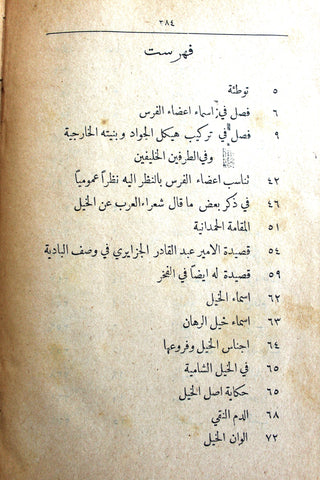 ٣٨٤
فهرست
٥ توطئة
٦ فصل في اسماء اعضاء الفرس
٩ فصل في تركيب هيكل الجواد وبنيته الخارجية
وفي الطرفين الخليفين
٤٢ تناسب اعضاء الفرس بالنظر اليه نظراً عمومياً
٤٦ في ذكر بعض ما قال شعراء العرب عن الخيل
٥١ المقامة الحمدانية
٥٤ قصيدة الامير عبد القادر الجزايري في وصف البادية
٥٩ قصيدة له ايضاً في الفخر
٦٢ اسماء الخيل
٦٣ اسماء خيل الرهان
٦٤ اجناس الخيل وفروعها
٦٥ في الخيل الشامية
٦٥ حكاية اصل الخيل
٦٨ الدم النقي
٧٢ الوان الخيل